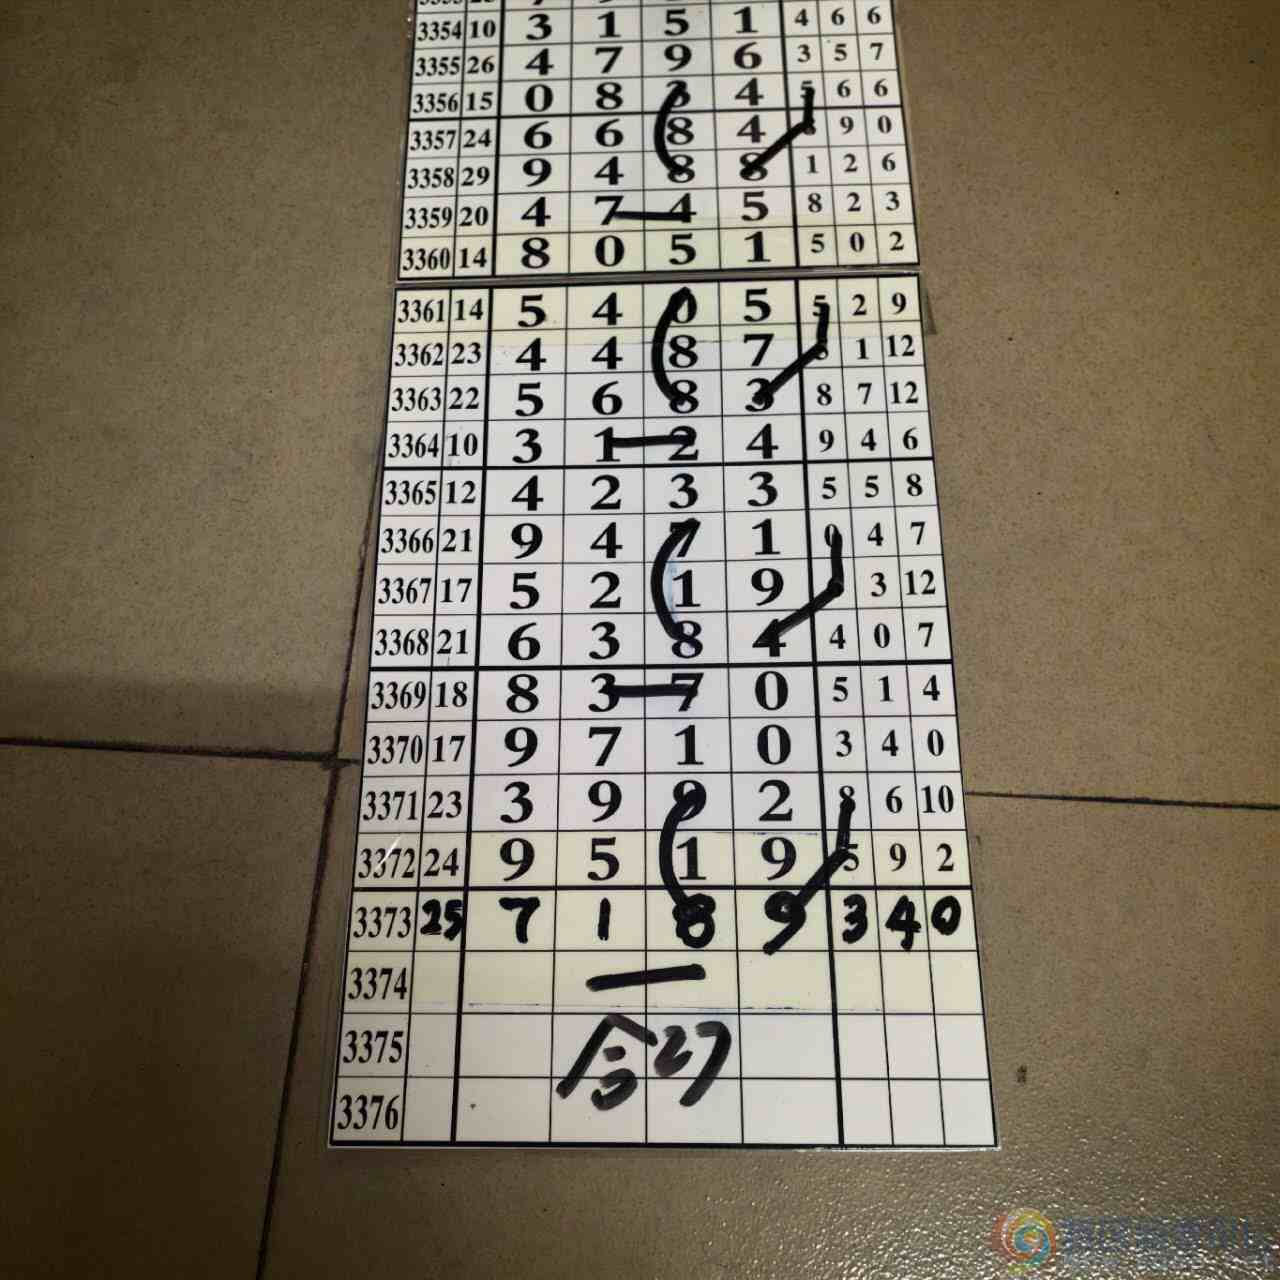 3354 10 3 1 5 1 4 6 6
3355 26 4 7 9 6 3 5 7
3356 15 0 8 3 4 5 6 6
3357 24 6 6 8 4 8 9 0
3358 29 9 4 8 8 1 2 6
3359 20 4 7 4 5 8 2 3
3360 14 8 0 5 1 5 0 2
3361 14 5 4 0 5 5 2 9
3362 23 4 4 8 7 1 12
3363 22 5 6 8 3 8 7 12
3364 10 3 1 2 4 9 4 6
3365 12 4 2 3 3 5 5 8
3366 21 9 4 7 1 0 4 7
3367 17 5 2 1 9 3 12
3368 21 6 3 8 4 4 0 7
3369 18 8 3 7 0 5 1 4
3370 17 9 7 1 0 3 4 0
3371 23 3 9 9 2 8 6 10
3372 24 9 5 1 9 5 9 2
3373 25 7 1 8 9 3 4 0
3374
3375 合27
3376